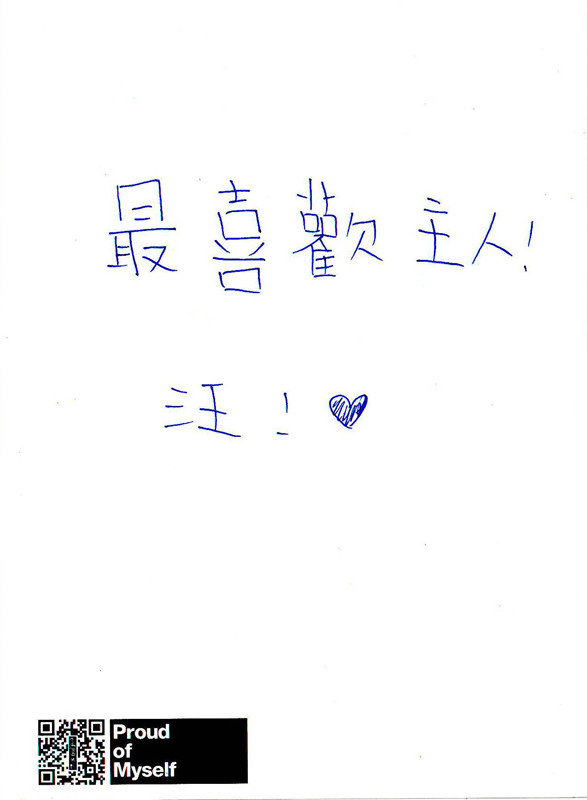 最喜歡主人!
汪!♥
Proud
of
Myself